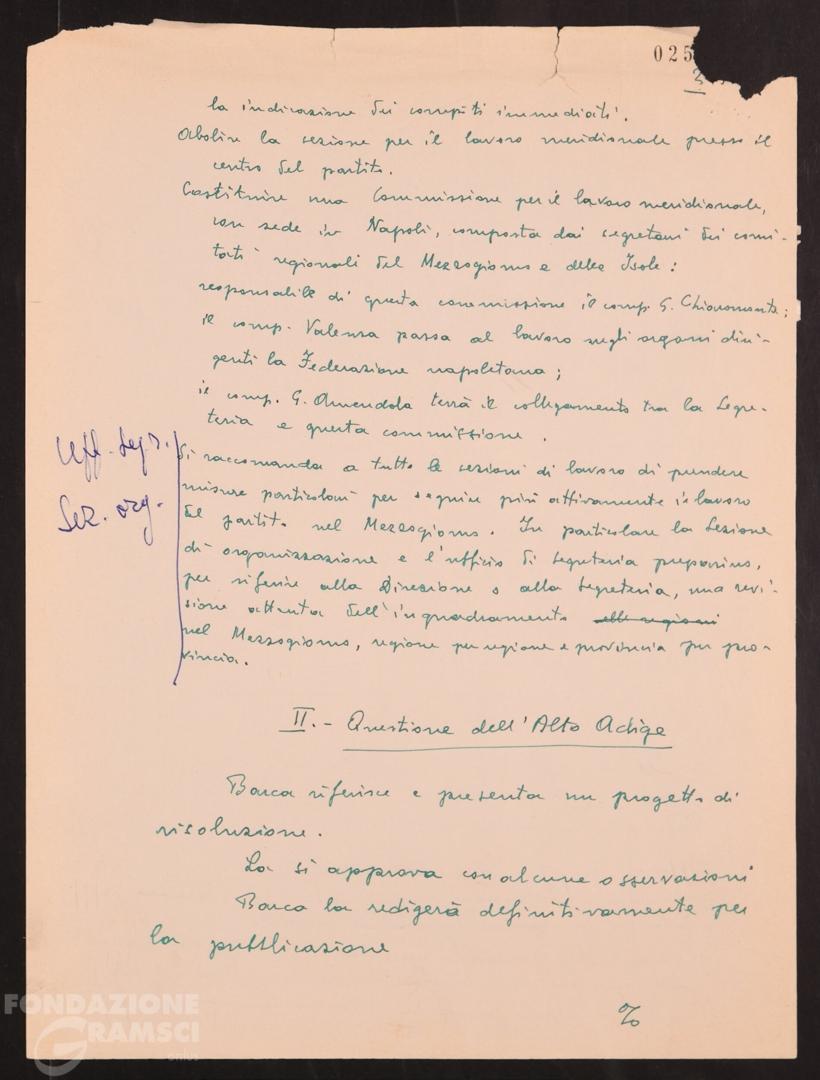 025
3
la indicazione dei compiti immediati.
Abolire la sezione per il lavoro meridionale presso il
centro del partito.
Costituire una Commissione per il lavoro meridionale,
con sede in Napoli, composta dai segretari dei comi-
tati regionali del Mezzogiorno e delle Isole:
responsabile di questa commissione il comp. G. Chiaromonte;
il comp. Valenza passa al lavoro negli organi diri-
genti la Federazione napoletana;
il comp. G. Amendola terrà il collegamento tra la Segre-
teria e questa commissione.
Uff. Segr.
Sez. org.
Si raccomanda a tutte le sezioni di lavoro di prendere
misure particolari per seguire più attivamente il lavoro
del partito nel Mezzogiorno. In particolare la Sezione
di organizzazione e l'ufficio di segreteria preparino,
per riferire alla Direzione o alla Segreteria, una revi-
sione attenta dell'inquadramento alle regioni
nel Mezzogiorno, regione per regione e provincia per pro-
vincia.
II. - Questione dell'Alto Adige
Barca riferisce e presenta un progetto di
risoluzione.
La si approva con alcune osservazioni
Barca la redigerà definitivamente per
la pubblicazione
FONDAZIONE
GRAMSCI
onlus